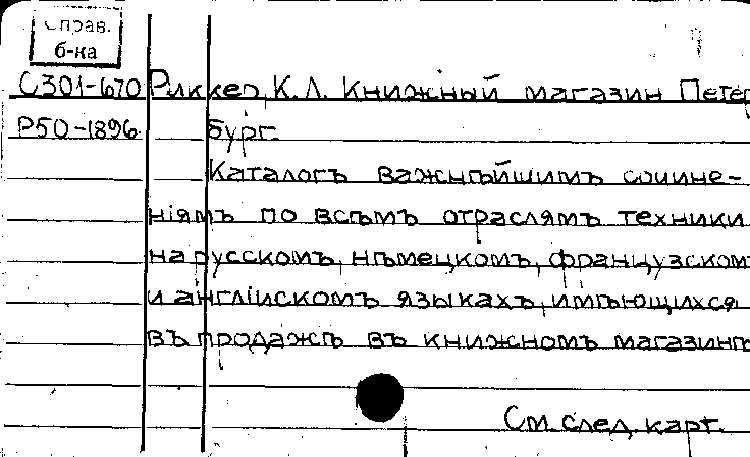 Справ.
б-ка
С301-670 Риккер, К.Л. Книжный магазин Петер
Р50-1896 бург.
Каталогъ важнѣйшимъ сочине-
ніямъ по всѣмъ отраслямъ техники
на русскомъ, нѣмецкомъ, французском
и англійскомъ языкахъ, имѣющихся
въ продажѣ въ книжномъ магазинѣ
См. след. карт.